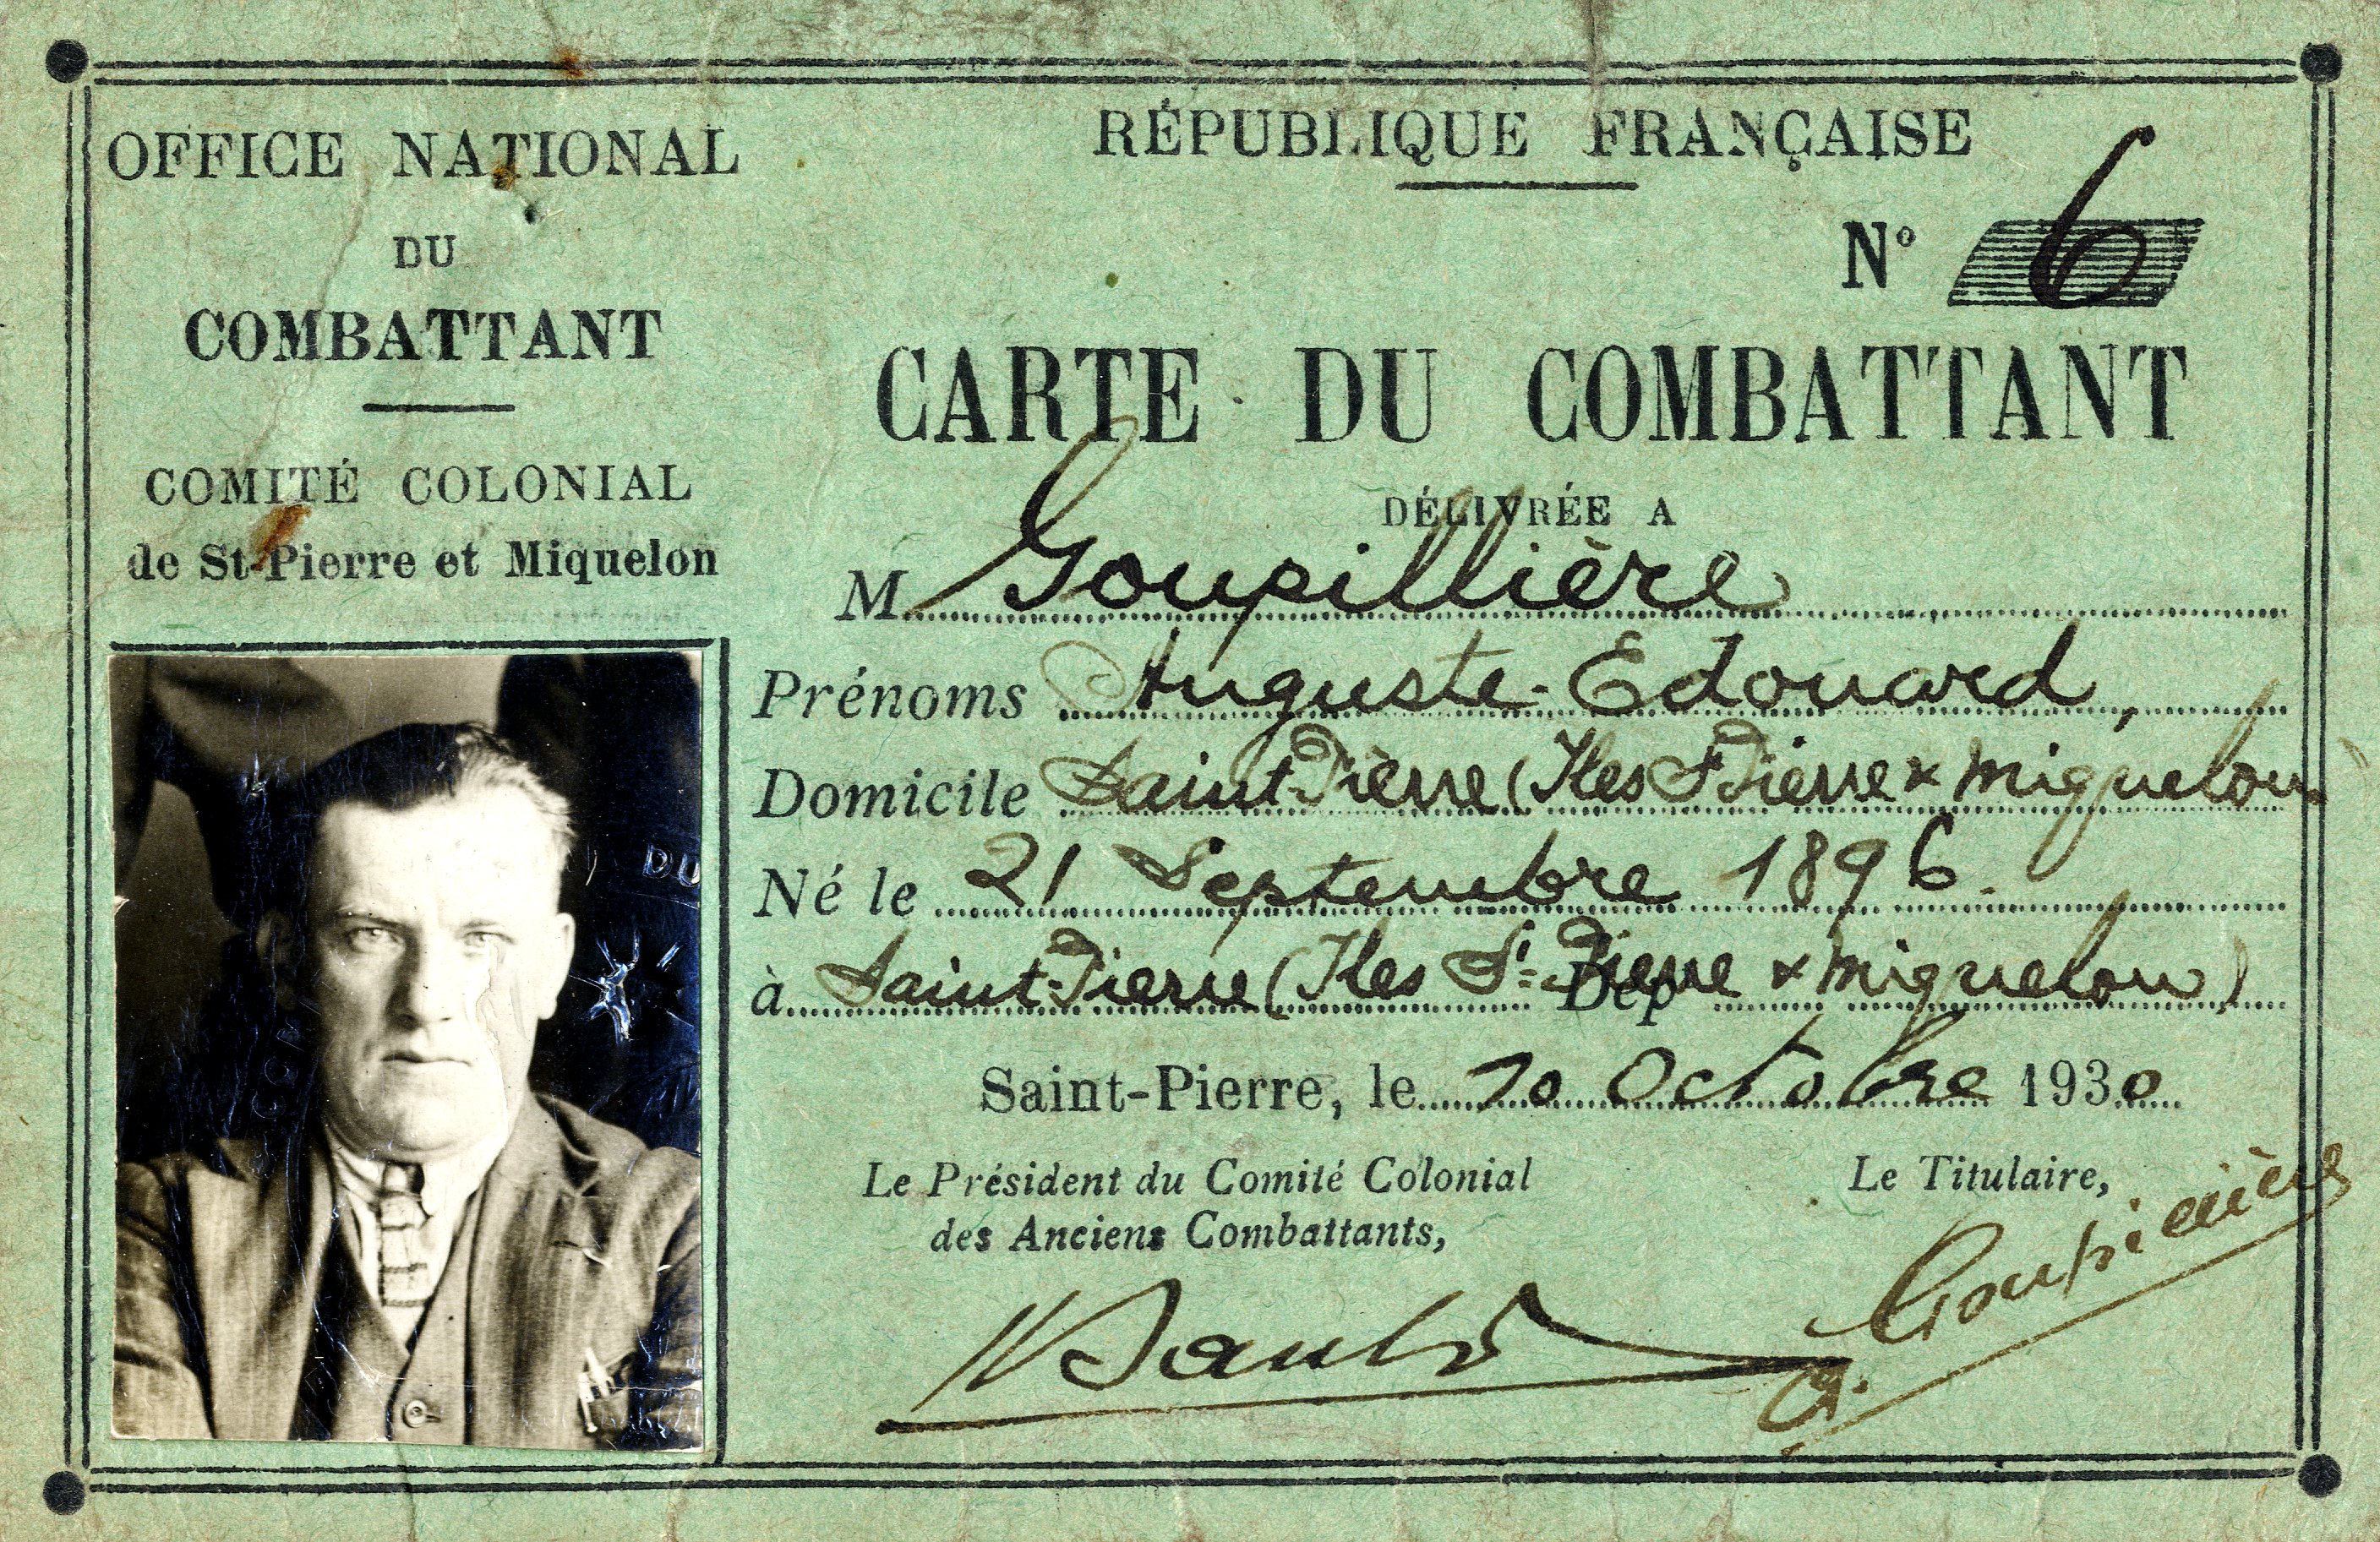 OFFICE NATIONAL
DU
COMBATTANT
COMITÉ COLONIAL
de St-Pierre et Miquelon
RÉPUBLIQUE FRANÇAISE
N° 6
CARTE DU COMBATTANT
DÉLIVRÉE A
M Goupillière
Prénoms Auguste-Edouard,
Domicile Saint-Pierre (Iles St Pierre & Miquelon
Né le 21 Septembre 1896.
à Saint-Pierre (Iles St-Pierre Dép & Miquelon)
Saint-Pierre, le 20 Octobre 1930
Le Président du Comité Colonial
des Anciens Combattants,
Le Titulaire,
Goupillière
DU